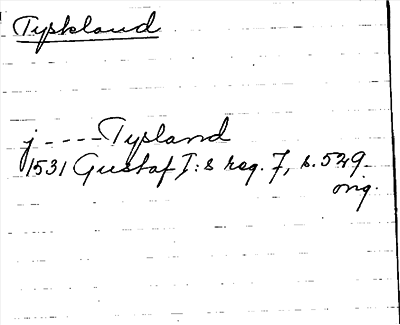 Tyskland
j - - - - Tysland
1531 Gustaf I:s reg. 7, s. 529
orig.